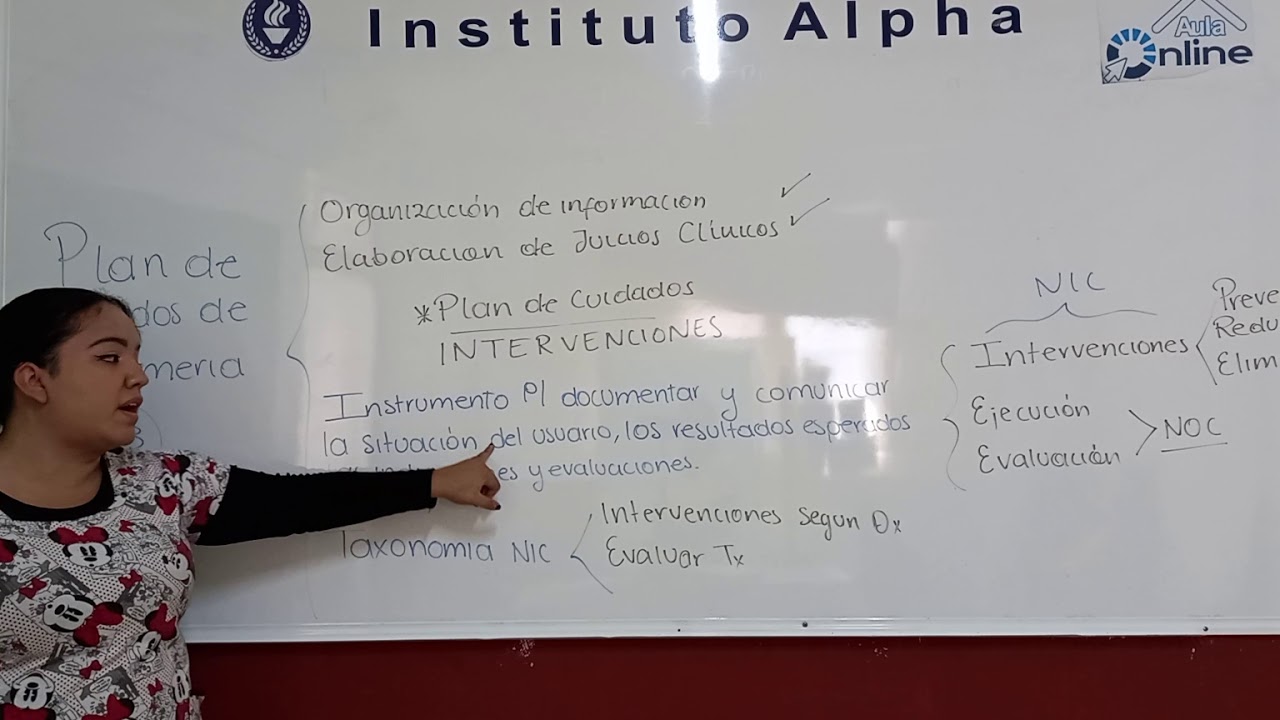 Instituto Alpha
Aula
Online
Plan de
dos de
meria
Organización de informacion
Elaboracion de Juicios Clínicos
*Plan de Cuidados
INTERVENCIONES
Instrumento P/ documentar y comunicar
la situación del usuario, los resultados esperados
es y evaluaciones.
Taxonomia NIC
Intervenciones segun Dx
Evaluar Tx
NIC
Intervenciones
Preve
Redu
Elim
Ejecución
Evaluación
NOC